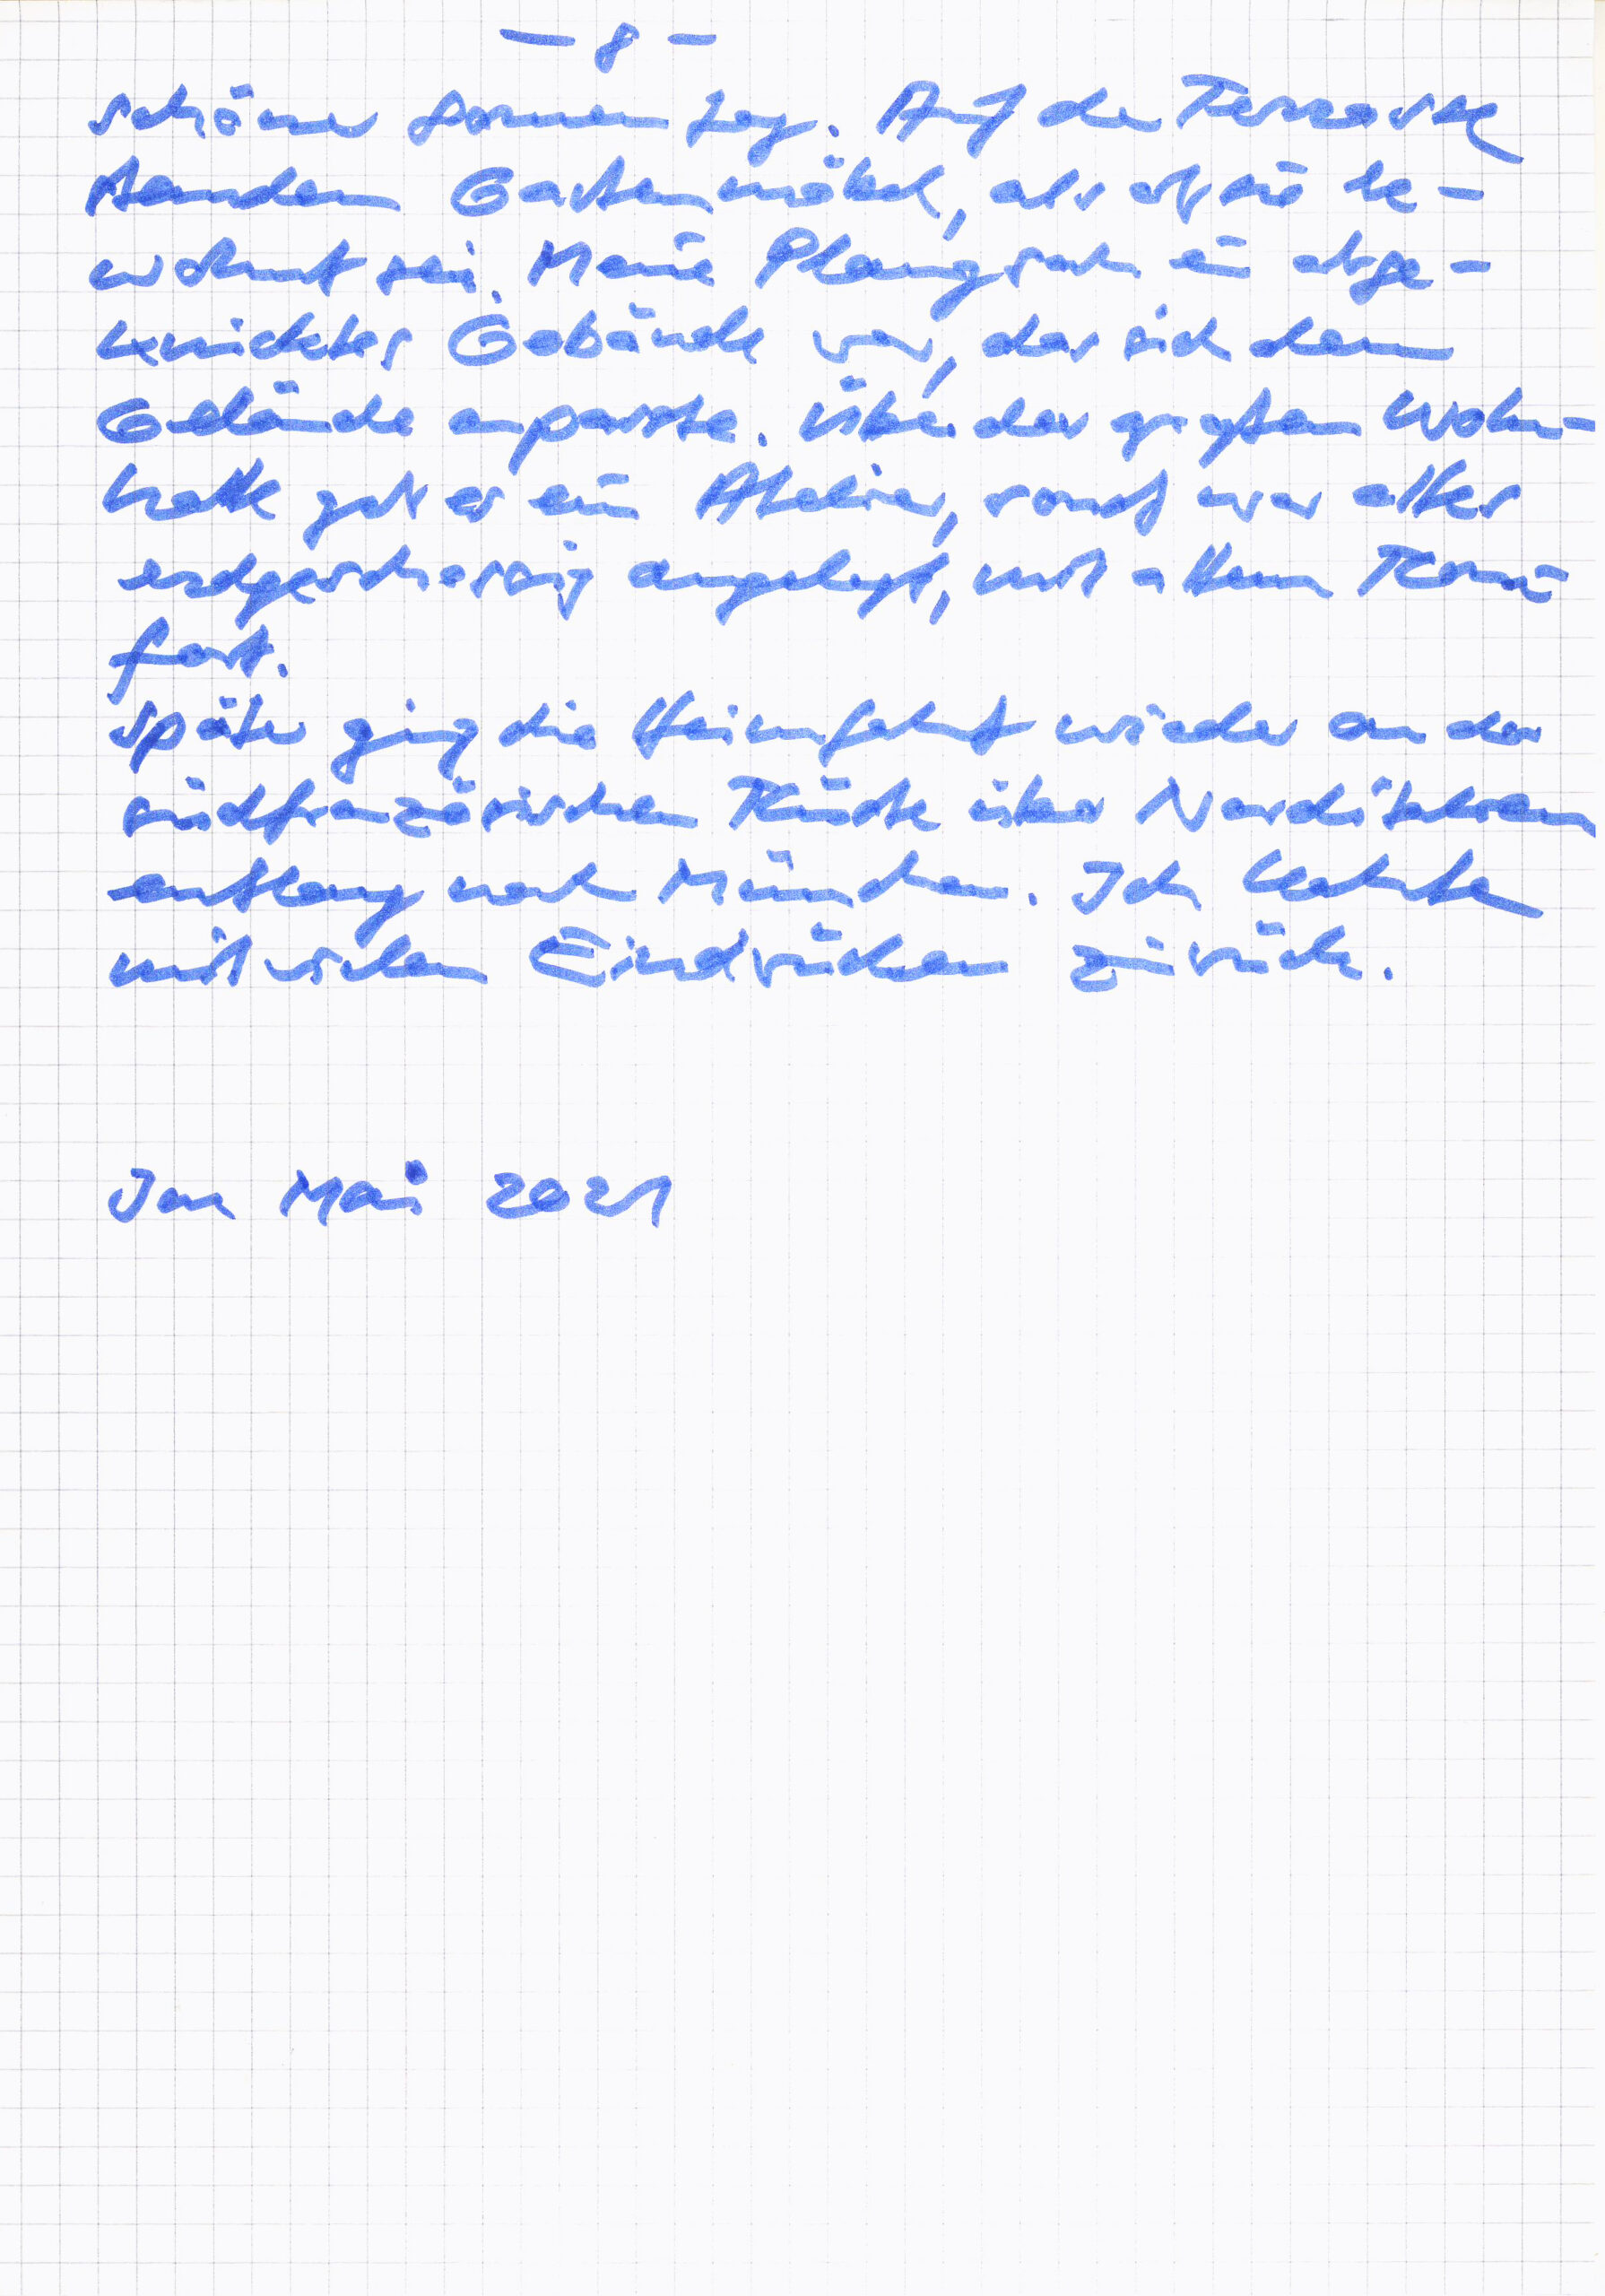 – 8 –
schöner Sonnentag. Auf der Terrasse
standen Gartenmöbel, als ob sie be-
wohnt sei. Meine Planung sah ein abge-
knicktes Gebäude vor, das sich dem
Gelände anpasste. Über der großen Wohn-
halle gab es ein Atelier, sonst war alles
erdgeschossig angelegt, mit allem Kom-
fort.
Später ging die Heimfahrt wieder an der
südfranzösischen Küste über Norditalien
entlang nach München. Ich kehrte
mit vielen Eindrücken zurück.
Im Mai 2021